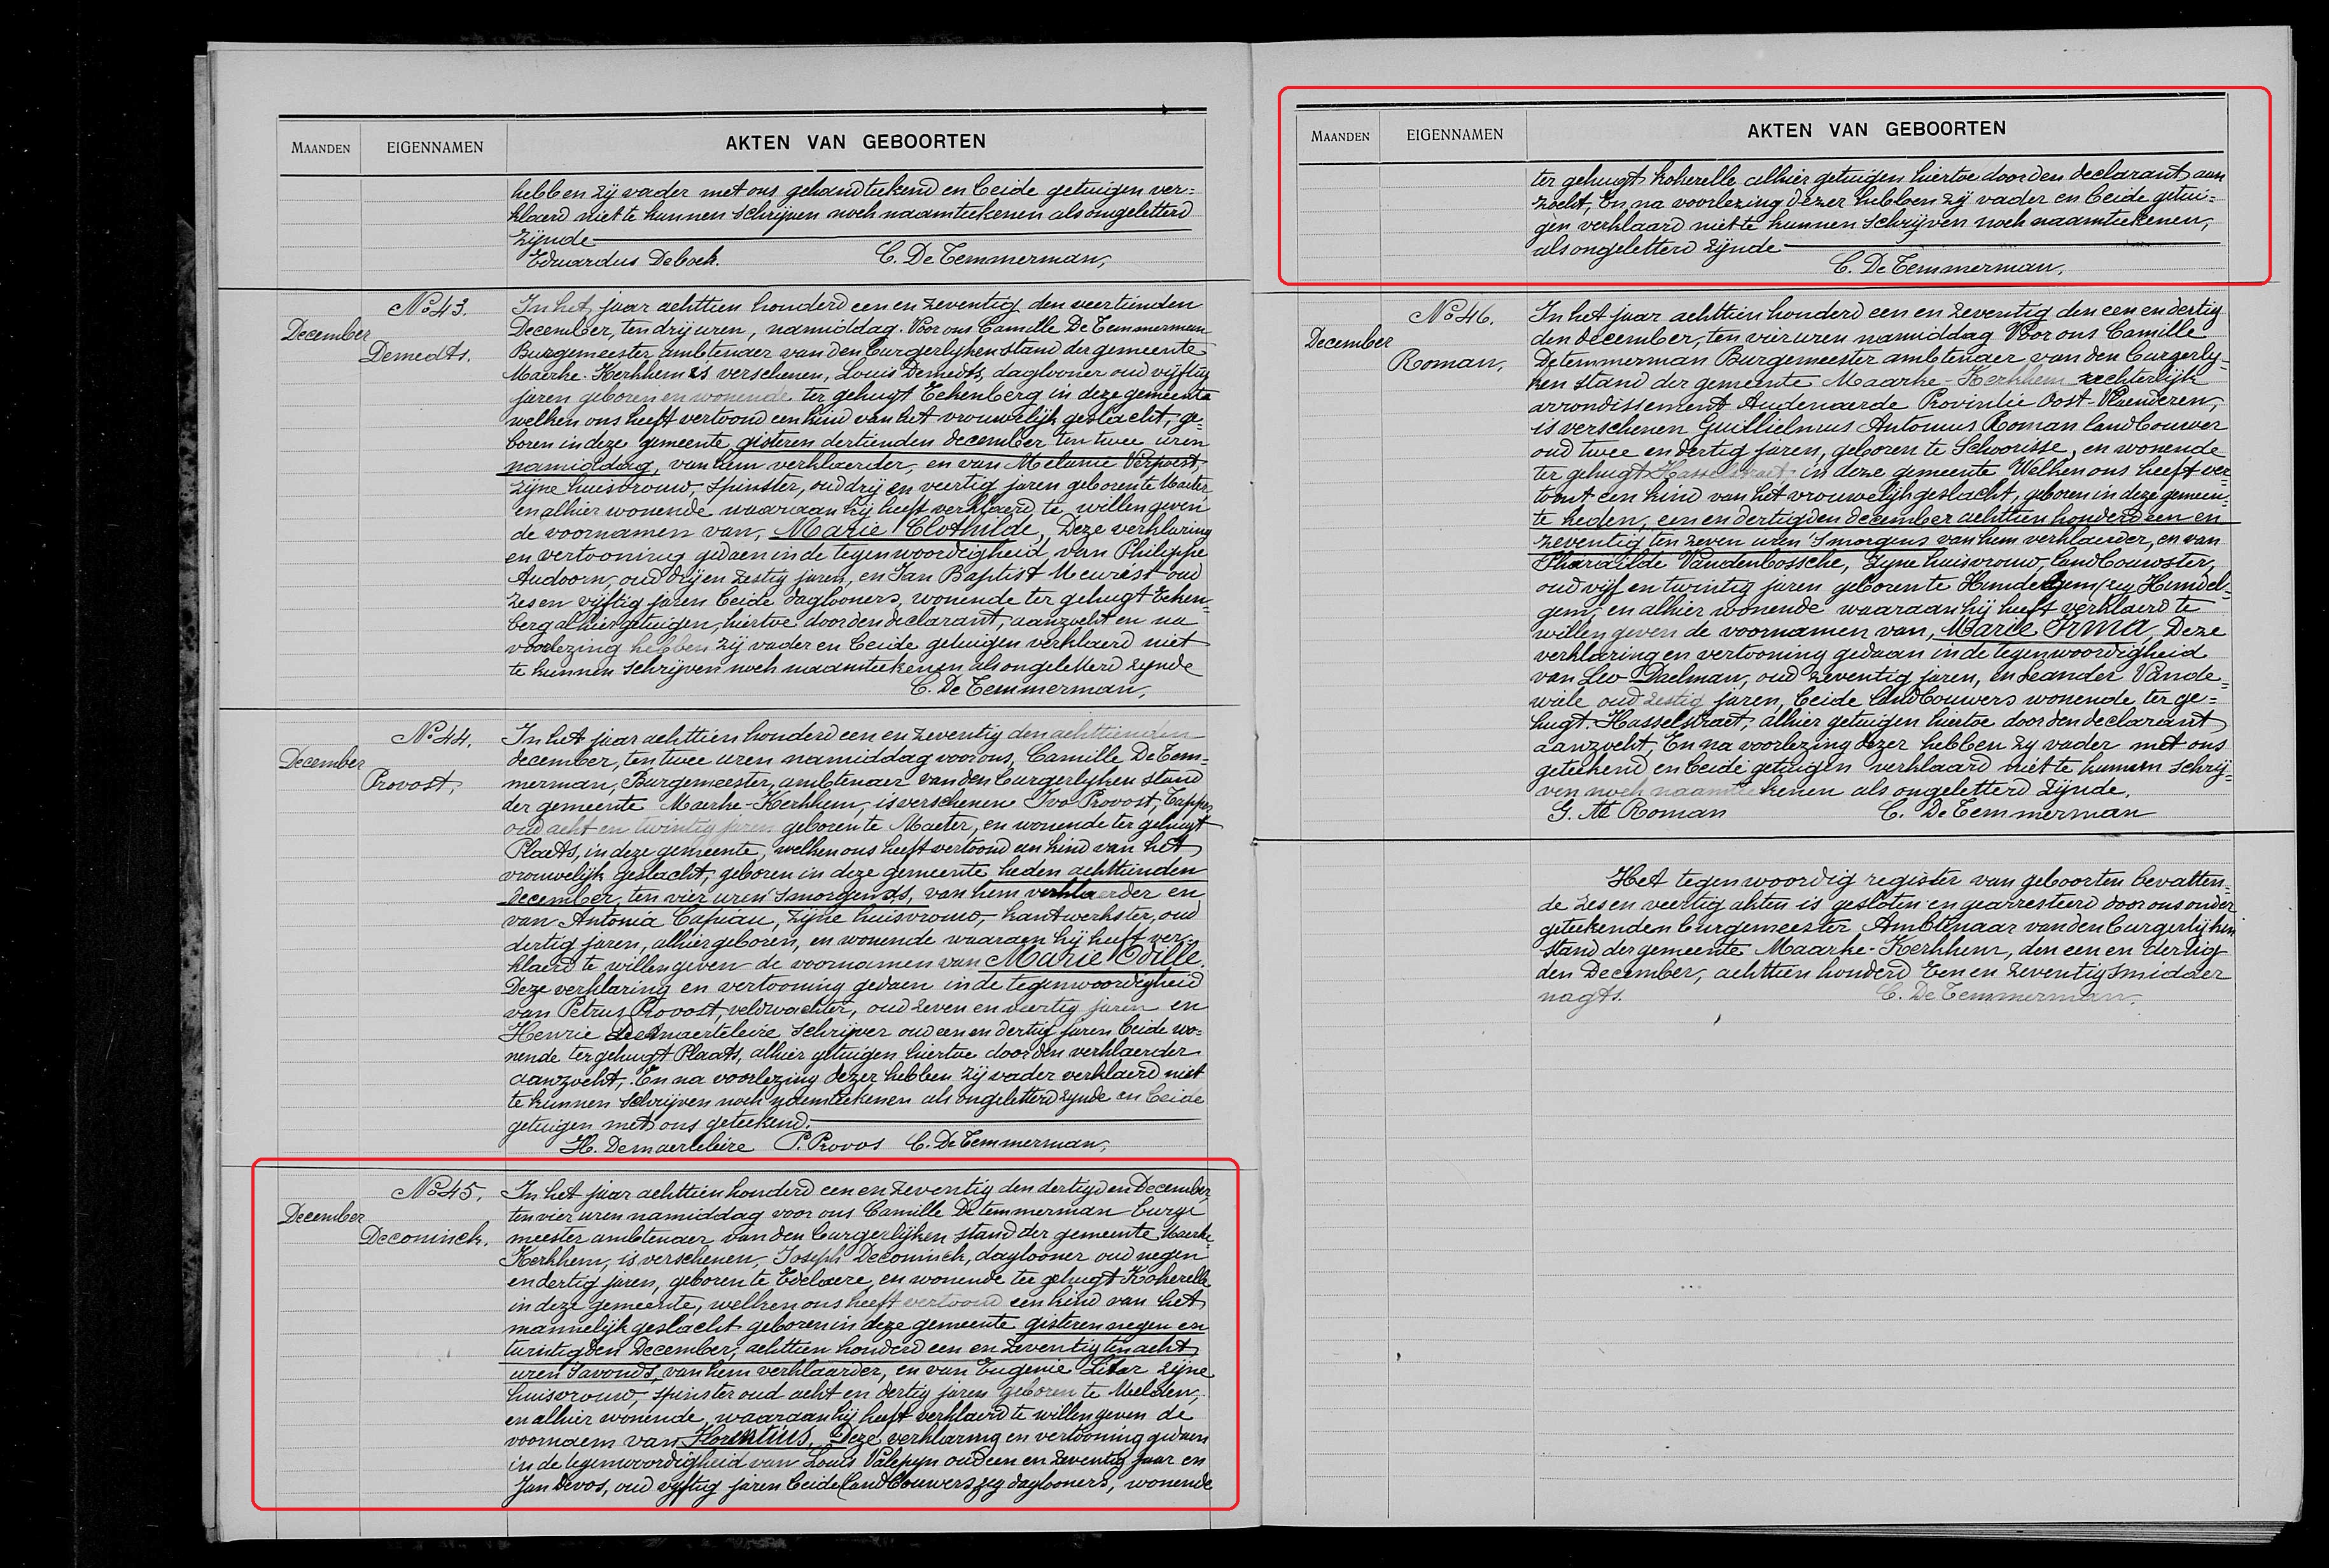 MAANDEN EIGENNAMEN AKTEN VAN GEBOORTEN
hebben zij vader met ons gehandteekend en beide getuigen ver=
klaerd niet te kunnen schrijven noch naamteekenen als ongeletterd
zijnde
Eduardus Debock. C. De Temmerman,
No 43.
December
Demedts.
In het jaar achttien honderd een en zeventig den veertienden
December, ten drij uren, namiddag. Voor ons Camille De Temmerman
Burgemeester ambtenaer van den burgerlyken stand der gemeente
Maerke-Kerkhem is verschenen, Louis Demedts, daglooner oud vijftig
jaren geboren en wonende ter gehugt Eekenberg in deze gemeente
welken ons heeft vertoond een kind van het vrouwelijk geslacht, ge=
boren in deze gemeente, gisteren dertienden december ten twee uren
namiddag, van hem verklaerder, en van Melanie Verpoest,
zijne huisvrouw, spinster, oud drij en veertig jaren geboren te Maeter
en alhier wonende waaraan hij heeft verklaerd te willen geven
de voornamen van, Marie Clothilde, Deze verklaring
en vertooning gedaen in de tegenwoordigheid van Philippe
Audoorn, oud drij en zestig jaren, en Jan Baptist Meurest oud
zes en vijftig jaren beide daglooners, wonende ter gehugt Eeken=
berg alhier getuigen, hiertoe door den declarant, aanzocht en na
voorlezing hebben zij vader en beide getuigen verklaerd niet
te kunnen schrijven noch naamteekenen als ongeletterd zynde
C. De Temmerman,
No 44.
December
Provost,
In het jaar achttien honderd een en zeventig den achttienden
december, ten twee uren namiddag voor ons, Camille De Tem=
merman, Burgemeester, ambtenaer van den burgerlyken stand
der gemeente Maerke-Kerkhem, is verschenen Ivo Provost, Tapper
oud acht en twintig jaren geboren te Maeter, en wonende ter gehugt
Plaets, in deze gemeente, welken ons heeft vertoond een kind van het
vrouwelijk geslacht, geboren in deze gemeente heden achttienden
december, ten vier uren smorgends, van hem verklaerder en
van Antonia Capiau, zijne huisvrouw, kantwerkster, oud
dertig jaren, alhier geboren, en wonende waaraen hij heeft ver=
klaerd te willen geven de voornamen van Marie Odille.
Deze verklaring en vertooning gedaen in de tegenwoordigheid
van Petrus Provost, veldwachter, oud zeven en veertig jaren en
Henrie Desmaerteleire schrijver oud een en dertig jaren beide wo=
nende ter gehugt Plaats, alhier getuigen hiertoe door den verklaerder
aanzocht, En na voorlezing dezer hebben zij vader verklaerd niet
te kunnen schrijven noch naemteekenen als ongeletterd zynde en beide
getuigen met ons geteekend.
H. Demaerteleire P. Provos C. De Temmerman,
No 45.
December
Deconinck.
In het jaar achttien honderd een en zeventig den dertigden December,
ten vier uren namiddag voor ons Camille Detemmerman burge
meester ambtenaer van den burgerlijken stand der gemeente Maerke=
Kerkhem, is verschenen, Joseph Deconinck, daglooner oud negen
en dertig jaren, geboren te Edelaere, en wonende ter gehugt Kokerelle
in deze gemeente, welken ons heeft vertoond een kind van het
mannelijk geslacht geboren in deze gemeente gisteren negen en
twintigden December, achttien honderd een en zeventig ten acht
uren savonds, van hem verklaarder, en van Eugenie Liter zijne
huisvrouw, spinster oud acht en dertig jaren geboren te Melden,
en alhier wonende, waaraan hij heeft verklaerd te willen geven de
voornaem van Florentius. Deze verklaring en vertooning gedaen
in de tegenwoordigheid van Louis Valepyn oud een en zeventig jaar en
Jan Devos, oud vyftig jaren beide landbouwers zeg daglooners, wonende
MAANDEN EIGENNAMEN AKTEN VAN GEBOORTEN
ter gehugt kokerelle alhier getuigen hiertoe door den declarant aan
zocht, En na voorlezing dezer hebben zy vader en beide getui=
gen verklaard niet te kunnen schrijven noch naamteekenen,
als ongeletterd zijnde
C. De Temmerman,
No 46.
December
Roman,
In het jaar achttien honderd een en zeventig den een en dertig
den december, ten vier uren namiddag Voor ons Camille
Detemmerman Burgemeester ambtenaer van den burgerly=
ken stand der gemeente Maarke-Kerkhem rechterlijk
arrondissement Audenaerde Provintie Oost-Vlaenderen,
is verschenen Guillielmus Antonius Roman landbouwer
oud twee en dertig jaren, geboren te Schoorisse, en wonende
ter gehugt Hasselstraet, in deze gemeente Welken ons heeft ver=
toont een kind van het vrouwelijk geslacht, geboren in deze gemeen=
te heden, een en dertigden december achttien honderd een en
zeventig ten zeven uren smorgens van hem verklaerder, en van
Pharaïlde Vandenbossche, zyne huisvrouw, landbouwster,
oud vijf en twintig jaren geboren te Hundelgem, zeg Hundel=
gem, en alhier wonende waaraan hij heeft verklaerd te
willen geven de voornamen van, Marie Irma, Deze
verklaring en vertooning gedaan in de tegenwoordigheid
van Leo Daelman, oud zeventig jaren, en Leander Vande=
wiele oud zestig jaren, beide landbouwers wonende ter ge=
hugt Hasselstraet, alhier getuigen hiertoe door den declarant
aanzocht, En na voorlezing dezer hebben zy vader met ons
geteekend en beide getuigen verklaard niet te kunnen schrij=
ven noch naamteekenen als ongeletterd zijnde,
G. A Roman C. De Temmerman
Het tegenwoordig register van geboorten bevatten=
de zes en veertig akten is gesloten en gearresteerd door ons onder
geteekenden burgemeester Ambtenaar van den burgerlijken
stand der gemeente Maarke-Kerkhem, den een en dertig
den December, achttien honderd Een en zeventig smidder
nagts. C. De Temmerman,